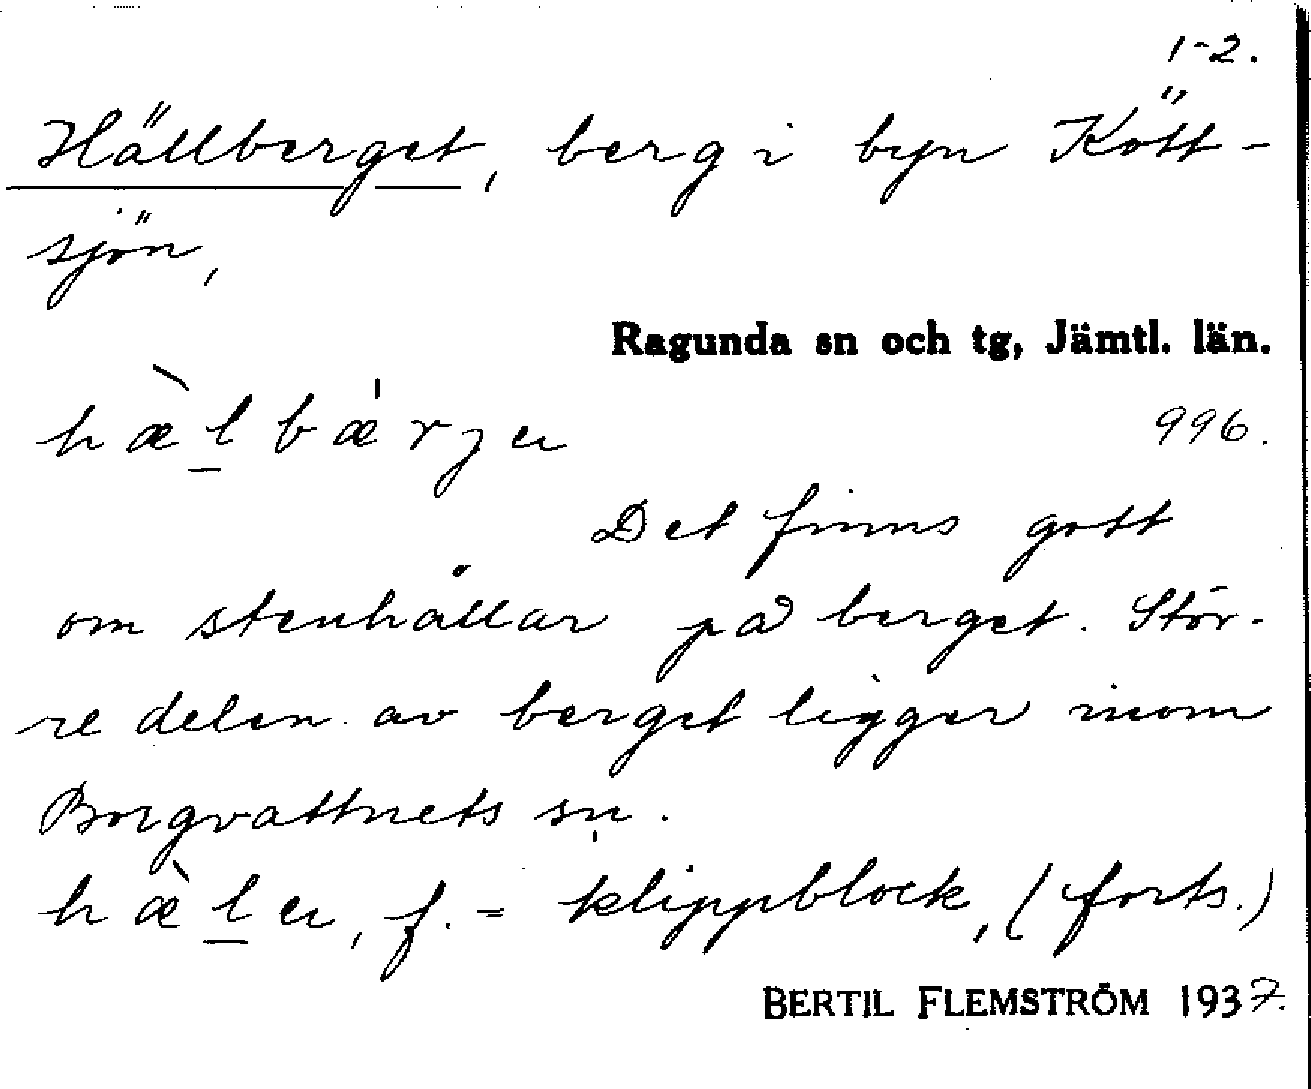 1-2.
Hällberget, berg i byn Kött-
sjön,
Ragunda sn och tg, Jämtl. län.
hæ̀l̲bæ̍rjeɹ
996.
Det finns gott
om stenhällar på berget. Stör-
re delen av berget ligger inom
Borgvattnets sn.
hæ̀l̲eɹ, f. = klippblock, (forts.)
BERTIL FLEMSTRÖM 1937.